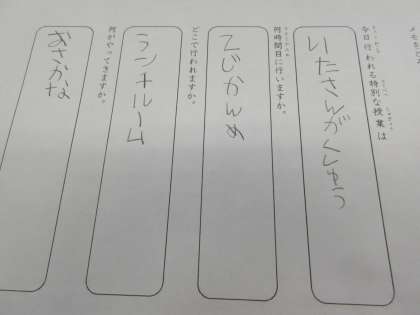 メモをと
今日行われる特別な授業は
いたさんがくしゅう
何時間目に行いますか。
2じかんめ
どこで行われますか。
ランチルーム
何がやってきますか。
おさかな